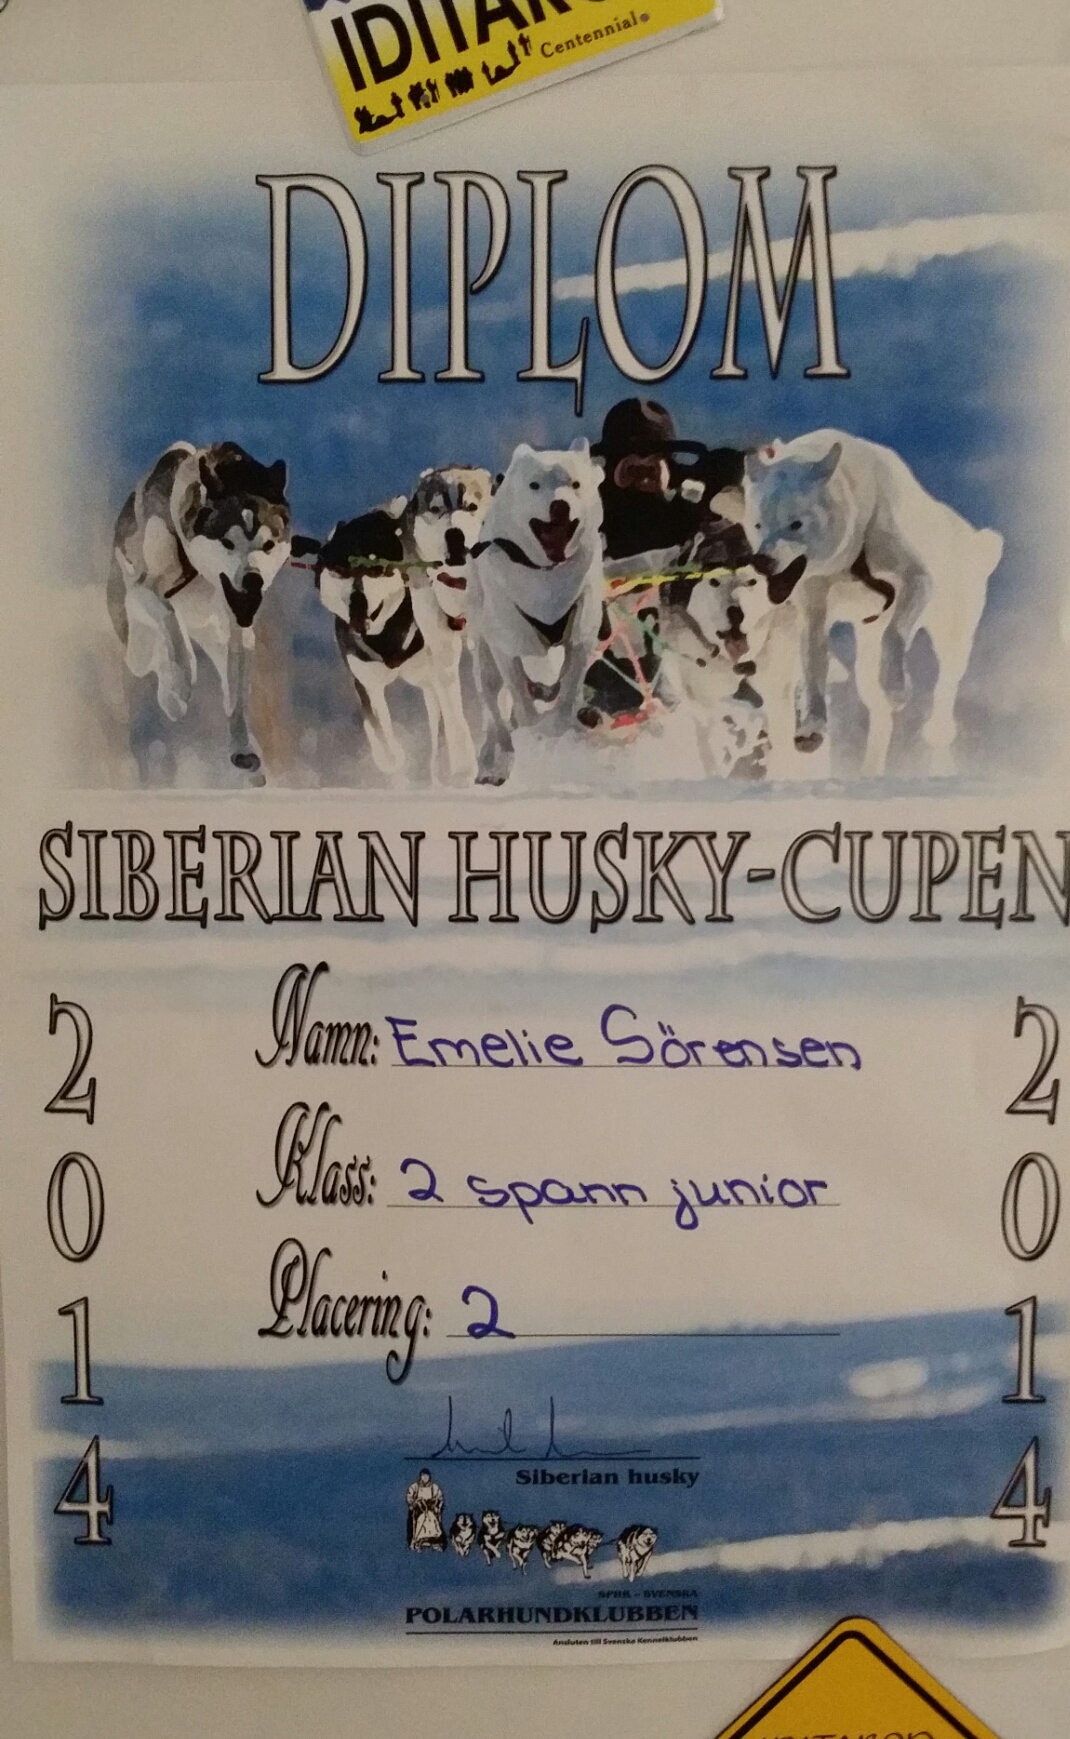 Centennial
DIPLOM
SIBERIAN HUSKY-CUPEN
2014
2014
Namn: Emelie Sörensen
Klass: 2 spann junior
Placering: 2
Siberian husky
SPHK - SVENSKA
POLARHUNDKLUBBEN
Ansluten till Svenska Kennelklubben